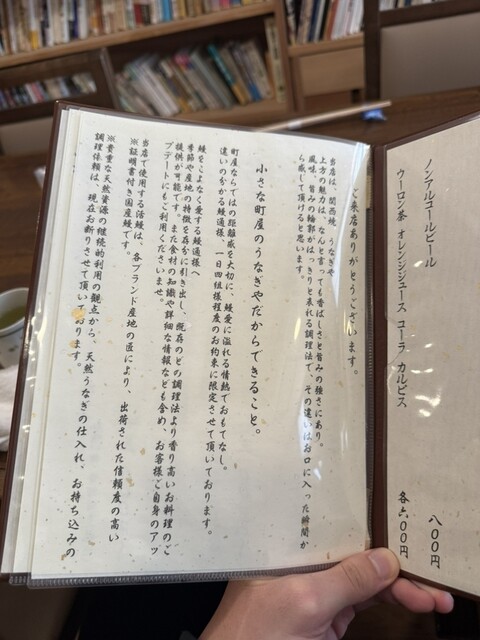 ノンアルコールビール 八〇〇円
ウーロン茶 オレンジジュース コーラ カルピス 各六〇〇円
ご来店ありがとうございます。
当店は、関西焼 うなぎや
上方の魅力は、なんと言っても香ばしさと旨みの強さにあり。
風味、旨みの輪郭がはっきりと表れる調理法で、その違いはお口に入った瞬間か
ら感して頂けると思います。
小さな町屋のうなぎやだからできること。
町屋ならではの距離感を大切に、鰻愛に溢れる情熱でおもてなし。
違いの分かる鰻通様、一日四組様程度のお約束に限定させて頂いております。
鰻をこよなく愛する鰻通様へ
季節や産地の特徴を存分に引き出し、既存のどの調理法より香り高いお料理のご
提供が可能です。また食材の知識や詳細な情報なども含め、お客様ご自身のアッ
プデートにもご利用くださいませ。
当店で使用する活鰻は、各ブランド産地の匠により、出荷された信頼度の高い
※証明書付き国産鰻です。
※貴重な天然資源の継続的利用の観点から、天然うなぎの仕入れ、お持ち込みの
調理依頼は、現在お断りさせて頂いております。